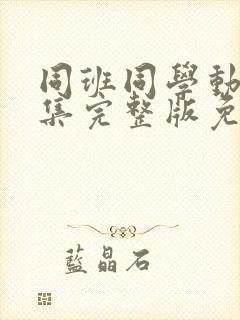 同班同學動
集完整版免
藍晶石